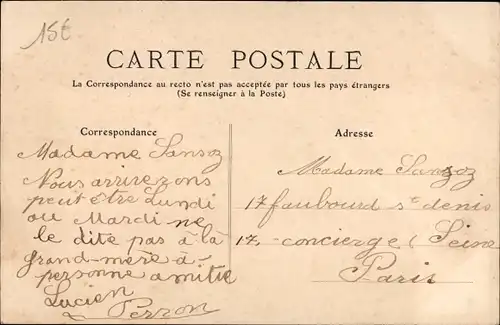 15t
CARTE POSTALE
La Correspondance au recto n'est pas acceptée par tous les pays étrangers
(Se renseigner à la Poste)
Correspondance
Madame Sansoz
Nous arriverons
peut être Lundi
ou Mardi ne
le dite pas à là
grand-mère à-
personne amitie
Lucien
Perron
Adresse
Madame Sansoz
17 faubourd st denis
17 - concierge (Seine
Paris